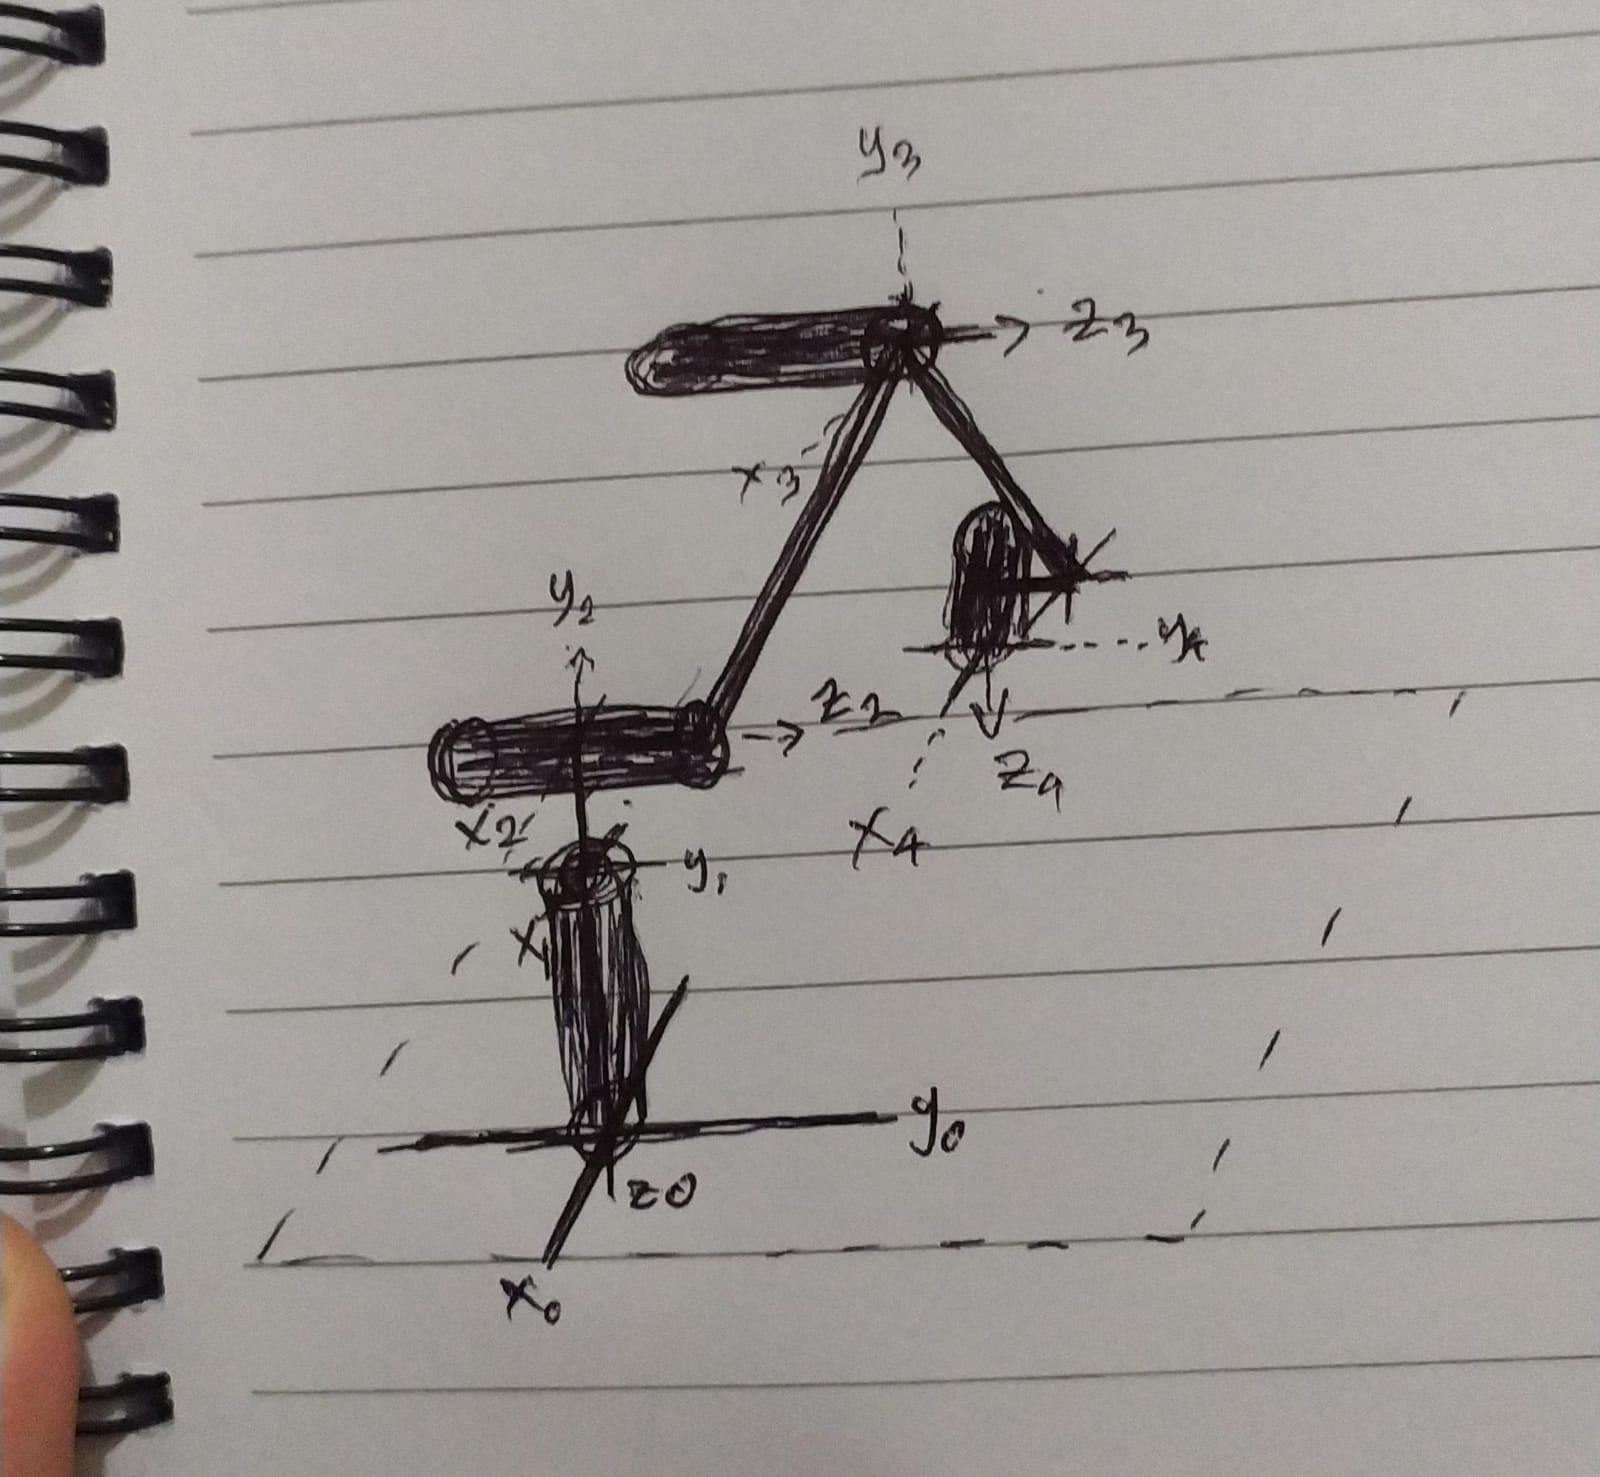 y3
z3
x3
y2
z2
x2
z4
x4
y1
x1
y0
z0
x0